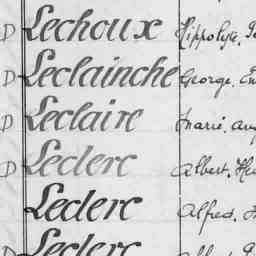 D Lechoux Hippolyte,
D Leclainche George,
D Leclaire Marie,
D Leclerc Albert,
Leclerc Alfred,
D Leclerc